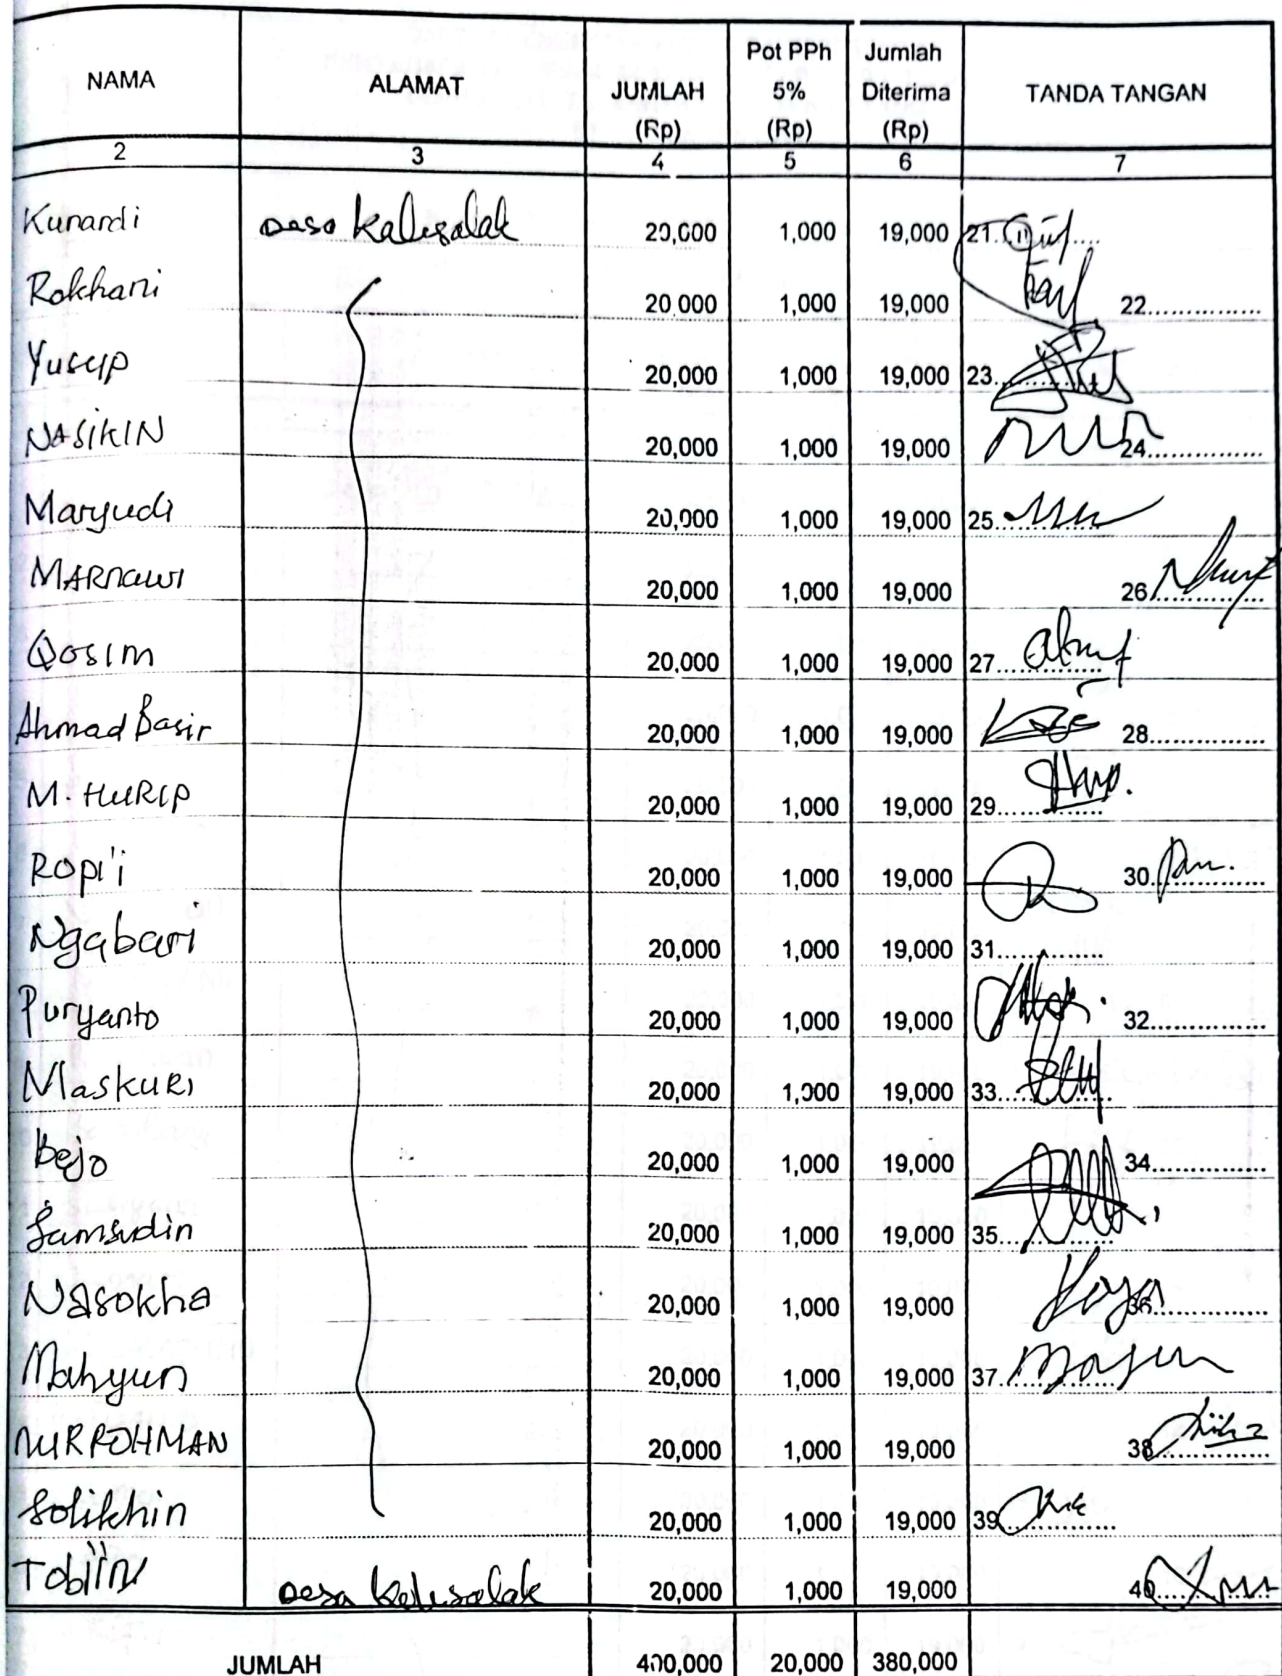 NAMA ALAMAT JUMLAH (Rp) Pot PPh 5% (Rp) Jumlah Diterima (Rp) TANDA TANGAN
2 3 4 5 6 7
Kunardi Desa Kalisalak 20,000 1,000 19,000 21
Rokhani 20,000 1,000 19,000 22
Yusup 20,000 1,000 19,000 23
NASIKIN 20,000 1,000 19,000 24
Maryudi 20,000 1,000 19,000 25
MARNAWI 20,000 1,000 19,000 26
Qosim 20,000 1,000 19,000 27
Ahmad Basir 20,000 1,000 19,000 28
M. HURIP 20,000 1,000 19,000 29
Ropi'i 20,000 1,000 19,000 30
Ngabari 20,000 1,000 19,000 31
Puryanto 20,000 1,000 19,000 32
Maskuri 20,000 1,000 19,000 33
bejo 20,000 1,000 19,000 34
Samsudin 20,000 1,000 19,000 35
Nasokha 20,000 1,000 19,000 36
Mahyun 20,000 1,000 19,000 37
NURROHMAN 20,000 1,000 19,000 38
Solikhin 20,000 1,000 19,000 39
Tobi'in Desa Kalisalak 20,000 1,000 19,000 40
JUMLAH 400,000 20,000 380,000